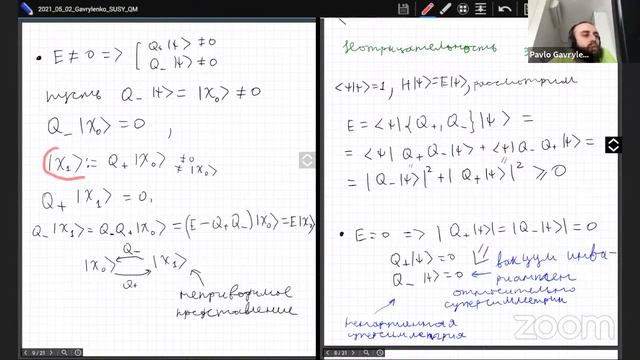 2021_05_02_Gavrylenko_SUSY_QM
• E ≠ 0 => [ Q₊|ψ⟩ ≠ 0
Q₋|ψ⟩ ≠ 0
пусть Q₋|ψ⟩ = |χ₀⟩ ≠ 0
Q₋|χ₀⟩ = 0 ,
|χ₁⟩ := Q₊|χ₀⟩ ≠ 0
≠ |χ₀⟩
Q₊|χ₁⟩ = 0,
Q₋|χ₁⟩ = Q₋Q₊|χ₀⟩ = (E - Q₊Q₋)|χ₀⟩ = E|χ₀⟩
Q₋
|χ₀⟩ |χ₁⟩
Q₊
неприводимое
представление
9 / 21
Неотрицательность
⟨ψ|ψ⟩ = 1 , H|ψ⟩ = E|ψ⟩ , рассмотрим
E = ⟨ψ|{Q₊, Q₋}|ψ⟩ =
= ⟨ψ|Q₊Q₋|ψ⟩ + ⟨ψ|Q₋Q₊|ψ⟩ =
= |Q₋|ψ⟩|² + |Q₊|ψ⟩|² ⩾ 0
• E = 0 => |Q₊|ψ⟩| = |Q₋|ψ⟩| = 0
Q₊|ψ⟩ = 0
Q₋|ψ⟩ = 0
вакуум инва-
риантен
относительно
суперсимметрии
суперсимметрия
8 / 21
Pavlo Gavryle...
zoom